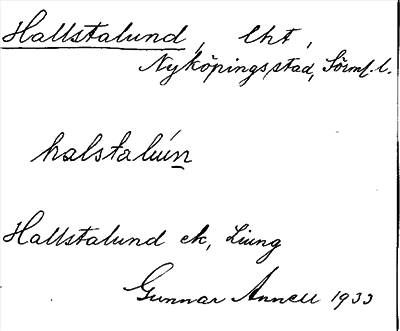 Hallstalund, lht,
Nyköpings stad, Sörml. l.
halstalún
Hallstalund ek, Liung
Gunnar Annell 1933